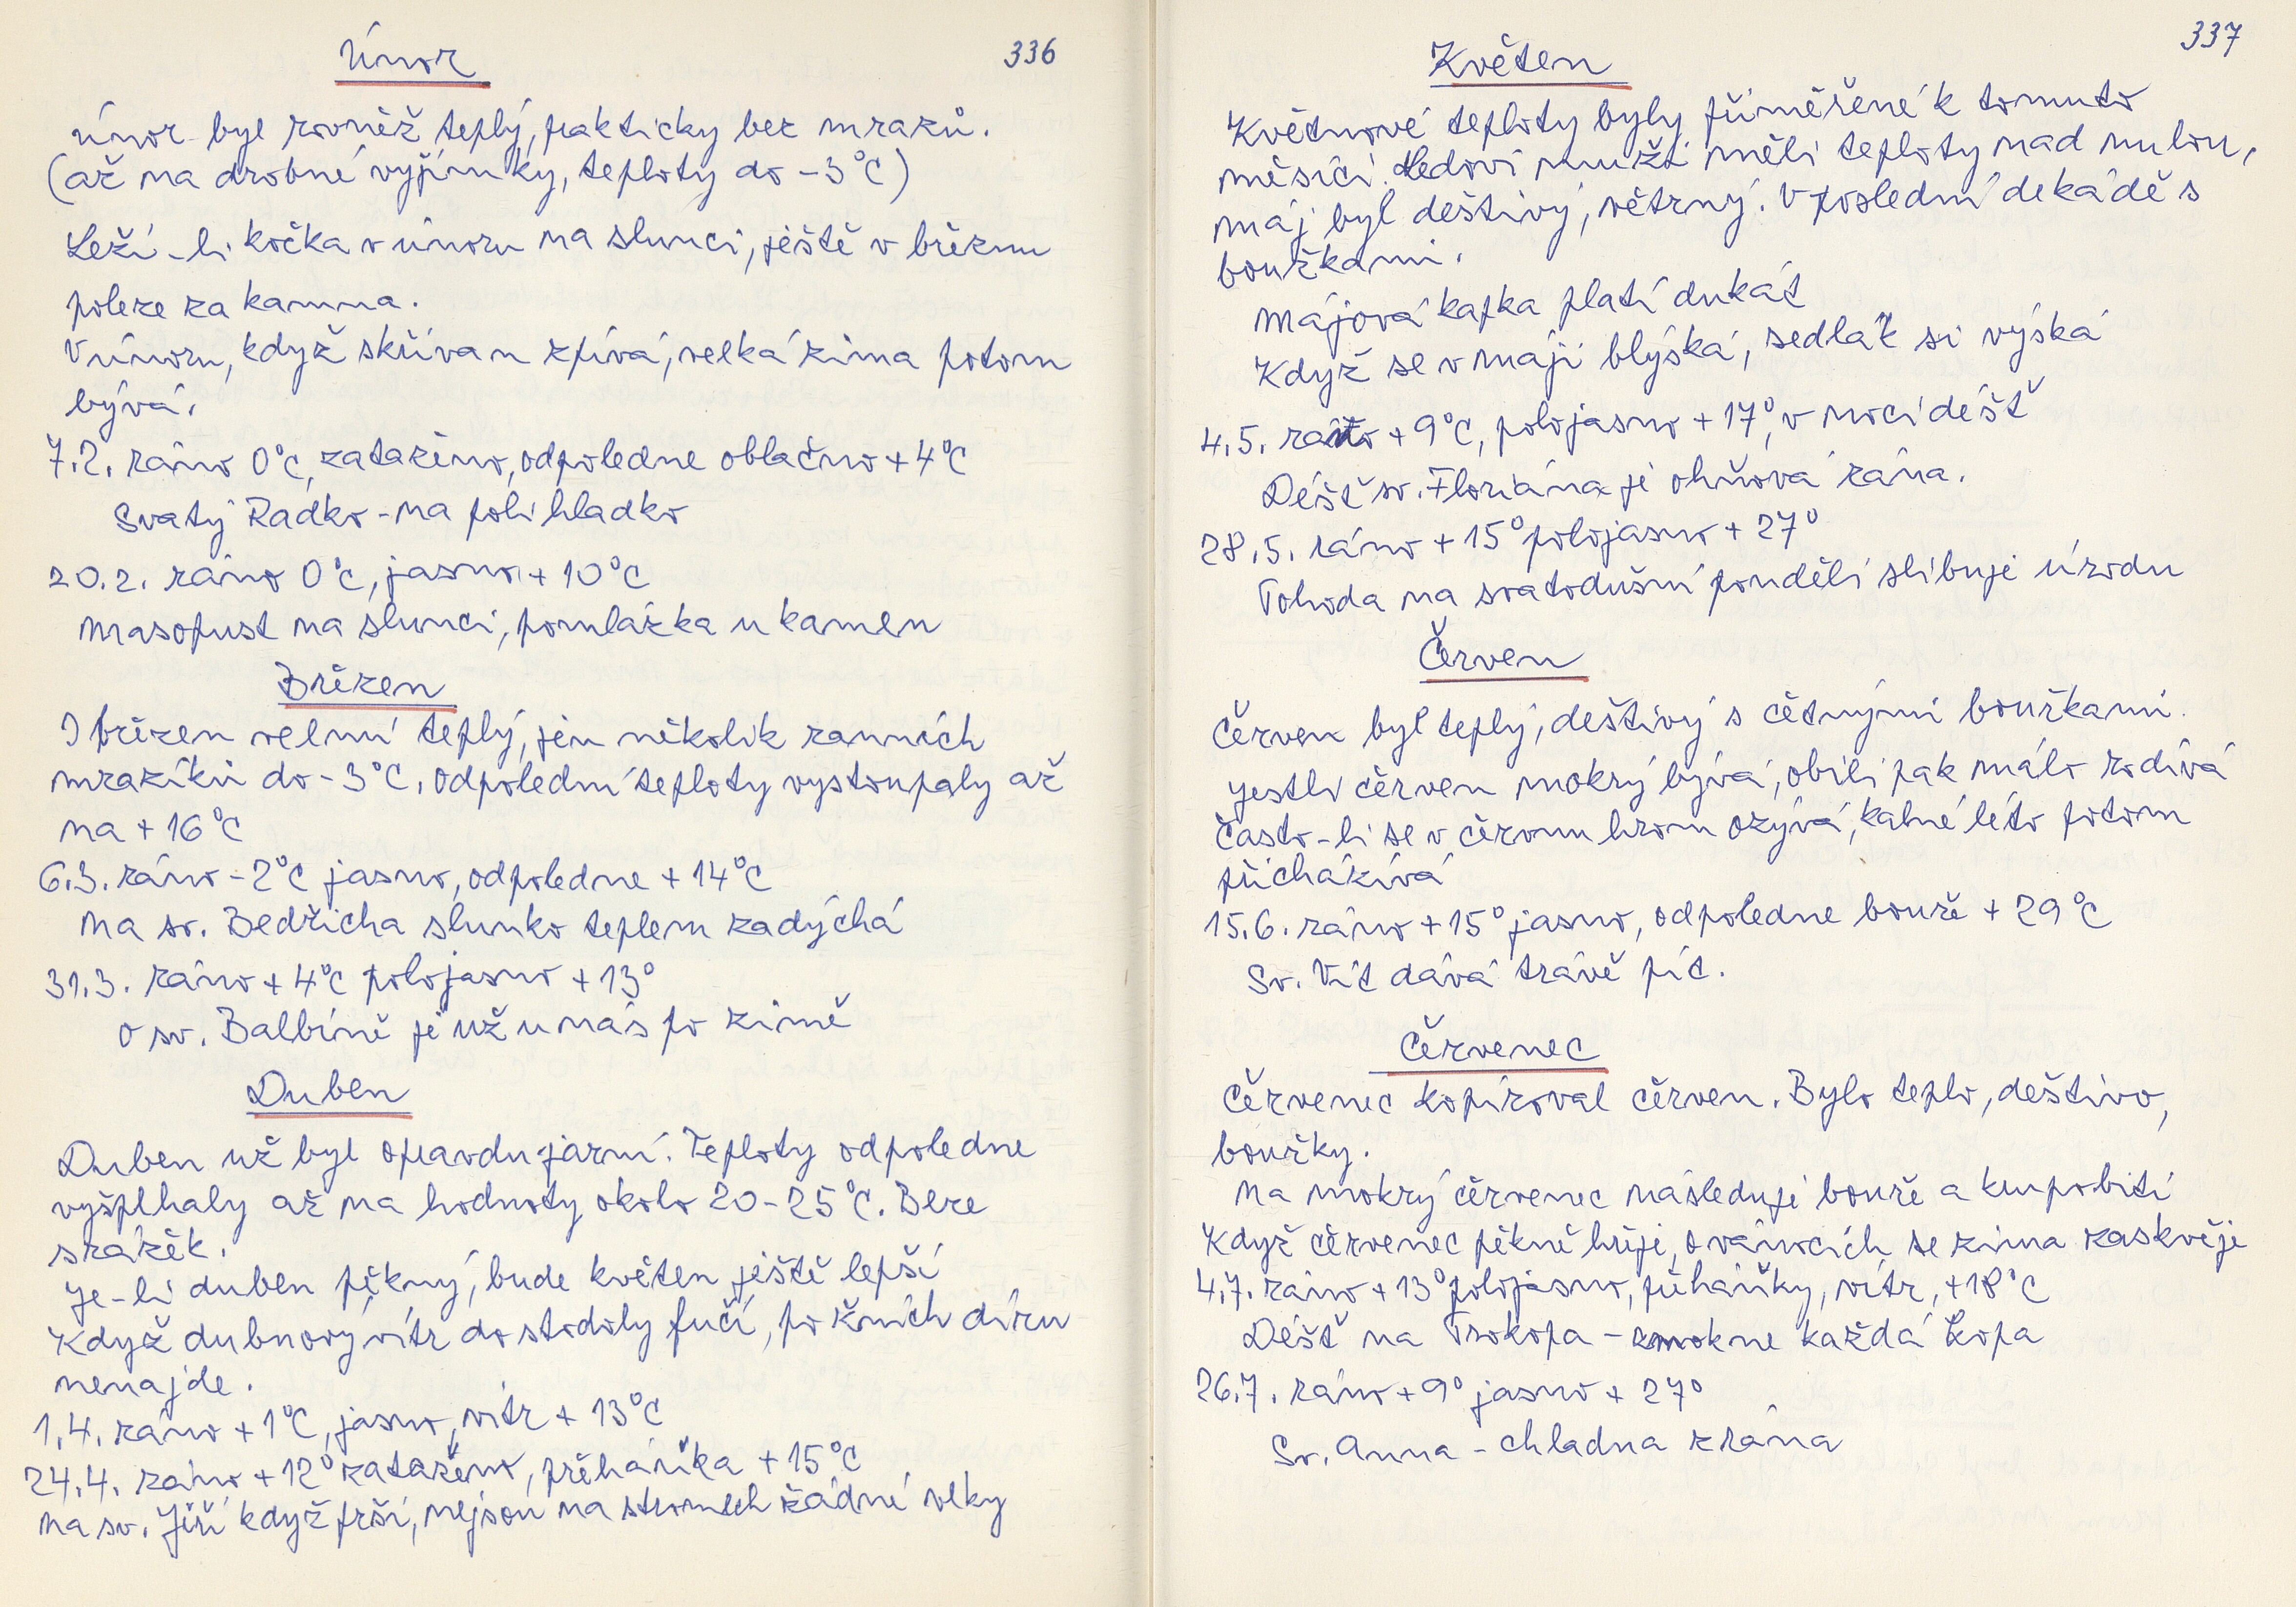 336
Únor
Únor byl rovněž teplý, prakticky bez mrazů.
(až na drobné vyjímky, teploty do -3°C)
Leží-li kočka v únoru na slunci, ještě v březnu
poleze za kamna.
V únoru, když skřivan zpívá, velká zima potom
bývá.
7.2. ráno 0°C, zataženo, odpoledne oblačno +4°C
Svatý Radko - na poli hladko
20.2. ráno 0°C, jasno + 10°C
Masopust na slunci, pomlázka u kamen
Březen
I březen velmi teplý, jen několik ranních
mrazíků do -3°C. Odpolední teploty vystoupaly až
na +16°C
6.3. ráno -2°C jasno, odpoledne +14°C
Na sv. Bedřicha slunko teplem zadýchá
31.3. ráno +4°C polojasno +13°
O sv. Balbíně je už u nás po zimě
Duben
Duben už byl opravdu jarní. Teploty odpoledne
vyšplhaly až na hodnoty okolo 20-25°C. Beze
srážek.
Je-li duben pěkný, bude květen ještě lepší
Když dubnový vítr do stodoly fučí, po žních díru
nenajde.
1.4. ráno +1°C, jasno, vítr + 13°C
24.4. ráno +12° zataženo, přeháňka +15°C
Na sv. Jiří když prší, nejsou na stromech žádné
337
Květen
Květnové teploty byly přiměřené k tomuto
měsíci. Ledoví muži měli teploty nad nulou,
máj byl deštivý, větrný. V poslední dekádě s
bouřkami.
Májová kapka platí dukát
Když se v máji blýská, sedlák si výská
4.5. ráno +9°C, polojasno +17°, v noci déšť
Déšť sv. Floriána je ohňová rána.
28.5. ráno +15° polojasno +27°
Pohoda na svatodušní pondělí slibuje úrodu
Červen
Červen byl teplý, deštivý s četnými bouřkami.
Jestli červen mokrý bývá, obilí pak málo rodívá
Často-li se v červnu hrom ozývá, kalné léto potom
přicházívá
15.6. ráno +15° jasno, odpoledne bouře +29°C
Sv. Vít dává trávě pít.
Červenec
Červenec kopíroval červen. Bylo teplo, deštivo,
bouřky.
Na mokrý červenec následuje bouře a krupobití
Když červenec pěkně hřeje, o vánocích se zima zaskvěje
4.7. ráno +13° polojasno, přeháňky, vítr, +18°C
Déšť na Prokopa - zmokne každá kopa
26.7. ráno +9° jasno + 27°
Sv. Anna - chladna zrána